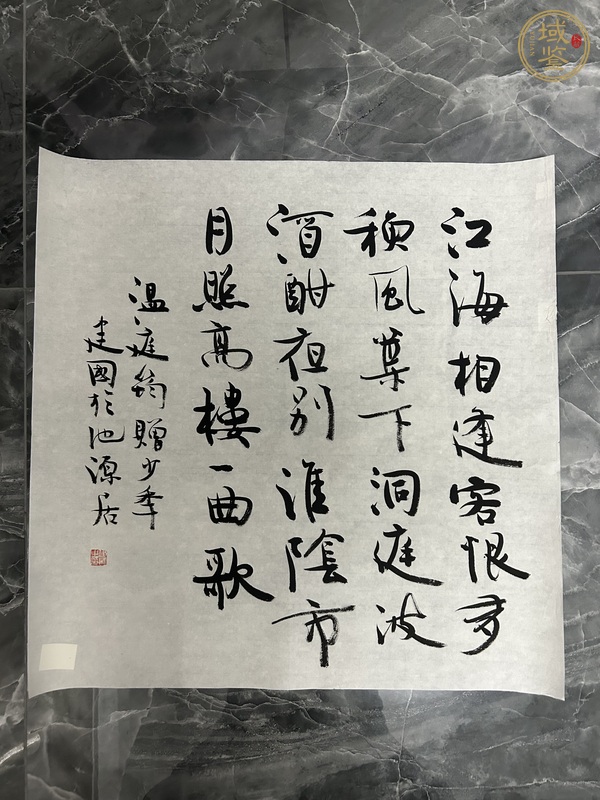 江海相逢客恨多
秋風葉下洞庭波
酒酣夜別淮陰市
月照高樓一曲歌
溫庭筠贈少年
建國於池源居
域鉴